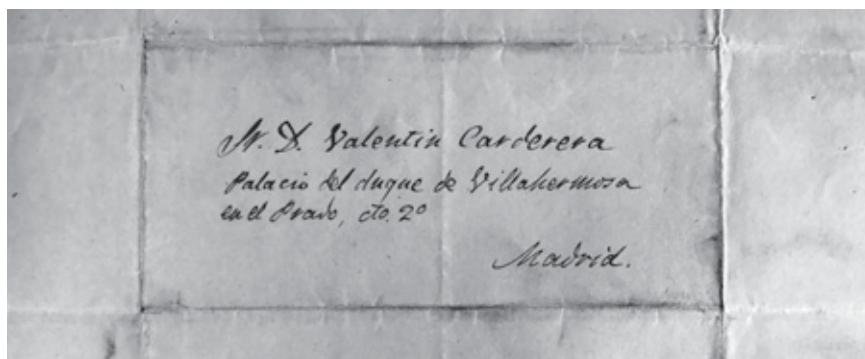 Sr. D. Valentin Carderera
Palacio del duque de Villahermosa
en el Prado, cto. 2º
Madrid.